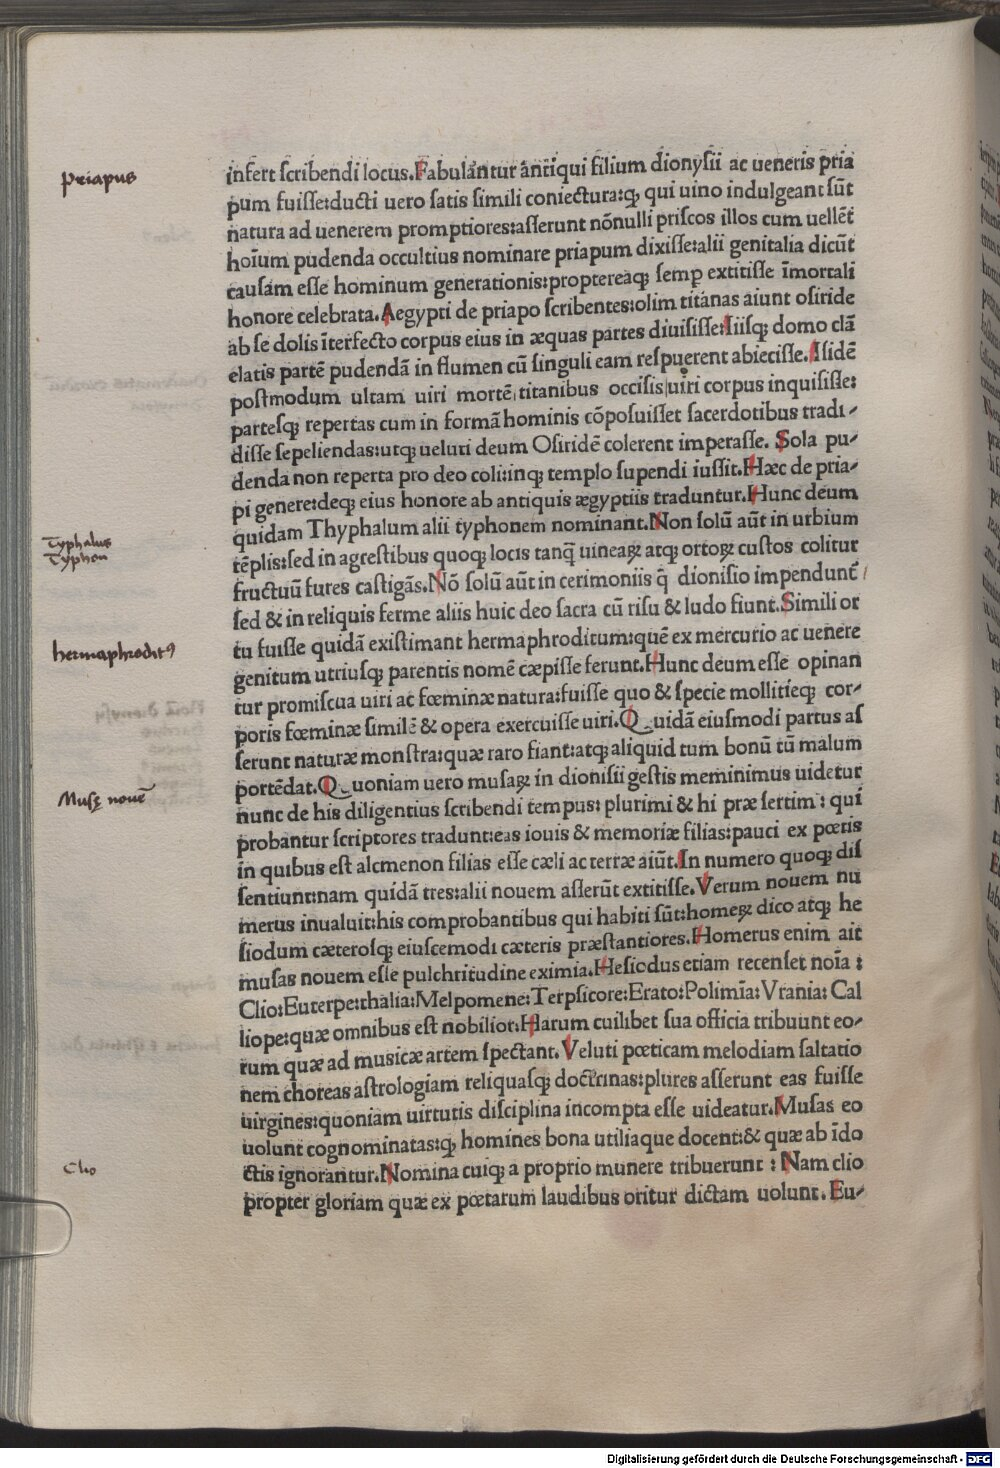 Priapus
infert scribendi locus. Fabulantur antiqui filium dionysii ac ueneris pria
pum fuisse: ducti uero satis simili coniectura: qꝫ qui uino indulgeant sūt
natura ad uenerem promptiores: asserunt nōnulli priscos illos cum uellēt
hoīum pudenda occultius nominare priapum dixisse: alii genitalia dicūt
causam esse hominum generationis: propterea qꝫ semꝑ extitisse īmortali
honore celebrata. Aegypti de priapo scribentes: olim titanas aiunt osiride
ab se dolis īterfecto corpus eius in æquas partes diuisisse: Iisqꝫ domo clā
elatis partē pudendā in flumen cū singuli eam respuerent abiecisse. Isidē
postmodum ultam uiri mortē titanibus occisis uiri corpus inquisisse:
partesqꝫ repertas cum in formā hominis cōposuisset sacerdotibus tradi-
disse sepeliendas: utqꝫ ueluti deum Osiridē colerent imperasse. Sola pu-
denda non reperta pro deo coli: inqꝫ templo supendi iussit. Hæc de pria-
pi genere: deqꝫ eius honore ab antiquis ægyptiis traduntur. Hunc deum
Typhalus
Typhon
quidam Thyphalum alii typhonem nominant. Non solū aūt in urbium
tēplis: sed in agrestibus quoqꝫ locis tanq̄ uineaꝝ atqꝫ ortoꝝ custos colitur
fructuū fures castigās. Nō solū aūt in cerimoniis q̄ dionisio impendunt̄
sed & in reliquis ferme aliis huic deo sacra cū risu & ludo fiunt. Simili or
hermaphroditꝰ
tu fuisse quidā existimant hermaphroditum: quē ex mercurio ac uenere
genitum utriusqꝫ parentis nomē cæpisse ferunt. Hunc deum esse opinan
tur promiscua uiri ac fœminæ natura: fuisse quo & specie mollitieqꝫ cor-
poris fœminæ similē & opera exercuisse uiri. Quidā eiusmodi partus as
serunt naturæ monstra: quæ raro fiant: atqꝫ aliquid tum bonū tū malum
Musę nouē
portēdat. Quoniam uero musaꝝ in dionisii gestis meminimus uidetur
nunc de his diligentius scribendi tempus: plurimi & hi præsertim: qui
probantur scriptores tradunt: eas iouis & memoriæ filias: pauci ex pœtis
in quibus est alcmenon filias esse cæli ac terræ aiūt. In numero quoqꝫ dis
sentiunt: nam quidā tres: alii nouem asserūt extitisse. Verum nouem nu
merus inualuit: his comprobantibus qui habiti sūt: homeꝝ dico atqꝫ he
siodum cæterosqꝫ eiuscemodi cæteris præstantiores. Homerus enim ait
musas nouem esse pulchritudine eximia. Hesiodus etiam recenset noīa:
Clio: Euterpe: thalia: Melpomene: Terpsicore: Erato: Polimīa: Vrania: Cal
liope: quæ omnibus est nobilior. Harum cuilibet sua officia tribuunt eo-
rum quæ ad musicæ artem spectant. Veluti pœticam melodiam saltatio
nem choreas astrologiam reliquasqꝫ doctrinas: plures asserunt eas fuisse
uirgines: quoniam uirtutis disciplina incompta esse uideatur. Musas eo
uolunt cognominatas: qꝫ homines bona utiliaque docent: & quæ ab īdo
Clio
ctis ignorantur. Nomina cuiqꝫ a proprio munere tribuerunt: Nam clio
propter gloriam quæ ex pœtarum laudibus oritur dictam uolunt. Eu-
Digitalisierung gefördert durch die Deutsche Forschungsgemeinschaft - DFG